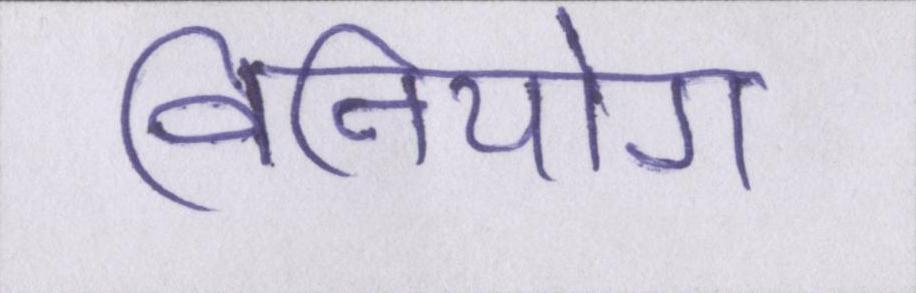 विनियोग